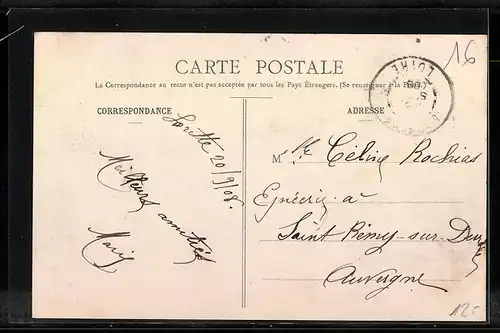 16
CARTE POSTALE
La Correspondance au recto n'est pas acceptée par tous les Pays Étrangers. (Se renseigner à la Poste)
CORRESPONDANCE
ADRESSE
LOIRE
Lorette 20/9/08.
Meilleures amitiés
Marie
Mlle Céline Rochias
Epicerie à
Saint Rémy-sur-Durolle
Auvergne
12.-